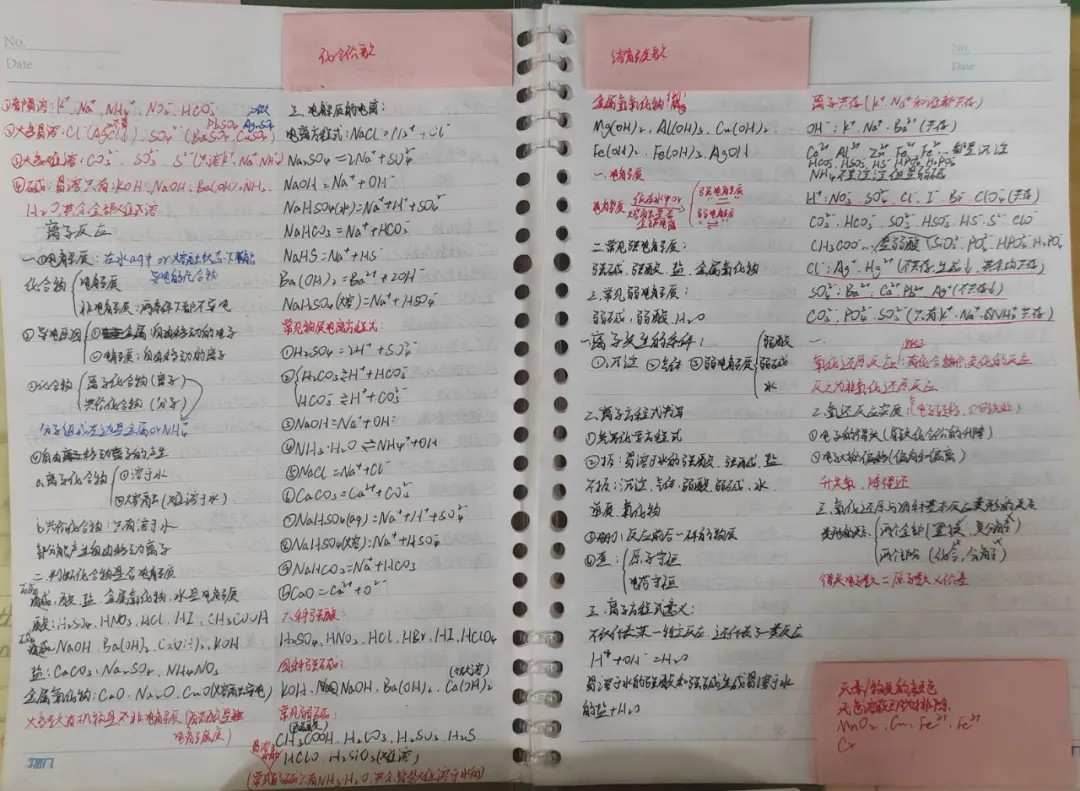 No.
Date
化合价数
①都易溶:K⁺、Na⁺、NH₄⁺、NO₃⁻、HCO₃⁻
②大多易溶:Cl⁻(AgCl)、SO₄²⁻(BaSO₄、CaSO₄)
PbSO₄ Ag₂SO₄
③大多难溶:CO₃²⁻、SO₃²⁻、S²⁻(只溶K⁺、Na⁺、NH₄⁺)
④碱:易溶只有:KOH、NaOH、Ba(OH)₂、NH₃·
H₂O其余全部难溶
离子反应
一.①电解质:在水aq中or熔融状态下能
导电的化合物
化合物 电解质
非电解质:两者都不能导电
②导电原因 ①金属:自由移动的电子
②电解质:自由移动的离子
③化合物 离子化合物(离子)
共价化合物(分子)
④自由移动离子的产生
a.离子化合物 ①溶于水
②熔融(难溶于水)
b.共价化合物:只有溶于水
部分能产生自由移动离子
二.判断化合物是否电解质
酸:H₂SO₄、HNO₃、HCl、HI、CH₃COOH
NaOH、Ba(OH)₂、Ca(OH)₂、KOH
盐:CaCO₃、Na₂SO₄、NH₄NO₃
金属氧化物:CaO、Na₂O、CuO(熔融导电)
三.电解质的电离:
电离方程式:NaCl=Na⁺+Cl⁻
Na₂SO₄=2Na⁺+SO₄²⁻
NaOH=Na⁺+OH⁻
NaHSO₄(水)=Na⁺+H⁺+SO₄²⁻
NaHCO₃=Na⁺+HCO₃⁻
NaHS=Na⁺+HS⁻
Ba(OH)₂=Ba²⁺+2OH⁻
NaHSO₄(熔)=Na⁺+HSO₄⁻
常见物质电离方程式:
①H₂SO₄=2H⁺+SO₄²⁻
②H₂CO₃⇌H⁺+HCO₃⁻
HCO₃⁻⇌H⁺+CO₃²⁻
③NaOH=Na⁺+OH⁻
④NH₃·H₂O⇌NH₄⁺+OH⁻
⑤NaCl=Na⁺+Cl⁻
⑥CaCO₃=Ca²⁺+CO₃²⁻
⑦NaHSO₄(aq)=Na⁺+H⁺+SO₄²⁻
⑧NaHSO₄(熔)=Na⁺+HSO₄⁻
⑨NaHCO₃=Na⁺+HCO₃⁻
⑩CaO=Ca²⁺+O²⁻
六种强酸:
H₂SO₄、HNO₃、HCl、HBr、HI、HClO₄
四种强碱:
KOH、NaOH、Ba(OH)₂、Ca(OH)₂
(微溶)
常见弱酸:
CH₃COOH、H₂CO₃、H₂SO₃、H₂S
HClO、H₂SiO₃(难溶)
No.
Date
金属氢氧化物
Mg(OH)₂、Al(OH)₃、Cu(OH)₂
Fe(OH)₂、Fe(OH)₃、AgOH
一.电解质
电解质 强电解质
弱电解质
二.常见强电解质:
强碱、强酸、盐、金属氧化物
三.常见弱电解质:
弱碱、弱酸、H₂O
一.离子发生的条件:
①沉淀 ②气体 ③弱电解质 弱酸
弱碱
水
二.离子方程式书写
①写:化学方程式
②拆:易溶于水的强酸、强碱、盐
不拆:沉淀、气体、弱酸、弱碱、水、
单质、氧化物
③删:
④查: 原子守恒
电荷守恒
三.离子方程式意义:
不仅代表某一特定反应,还代表了一类反应
H⁺+OH⁻=H₂O
易溶于水的强酸和强碱生成易溶于水
的盐+H₂O
离子共存(K⁺、Na⁺和谁都共存)
OH⁻:K⁺、Na⁺、Ba²⁺(共存)
Ca²⁺、Al³⁺、Zn²⁺、Fe²⁺、Fe³⁺…都是沉淀
HCO₃⁻、HSO₃⁻、HS⁻、HPO₄²⁻、H₂PO₄⁻
H⁺:NO₃⁻、SO₄²⁻、Cl⁻、I⁻、Br⁻、ClO₄⁻(共存)
CO₃²⁻、HCO₃⁻、SO₃²⁻、HSO₃⁻、HS⁻、S²⁻、ClO⁻
CH₃COO⁻…
Cl⁻:Ag⁺、Hg²⁺(不共存,生成↓,其余均共存)
SO₄²⁻:Ba²⁺、Ca²⁺、Pb²⁺、Ag⁺(不共存)
CO₃²⁻、PO₄³⁻、SO₃²⁻(只有K⁺、Na⁺、NH₄⁺共存)
一.
氧化还原反应:有化合价变化的反应
反之为非氧化还原反应
二.氧还反应实质
①电子的得失(导致化合价的升降)
②电子对的偏移(偏向和偏离)
升失氧,降得还
三.氧化还原与四种基本反应类型的关系
两个全部(置换,复分解)
两个部分(化合,分解)
得失电子数=原子数×价差
MnO₂、Cu、Fe²⁺、Fe³⁺